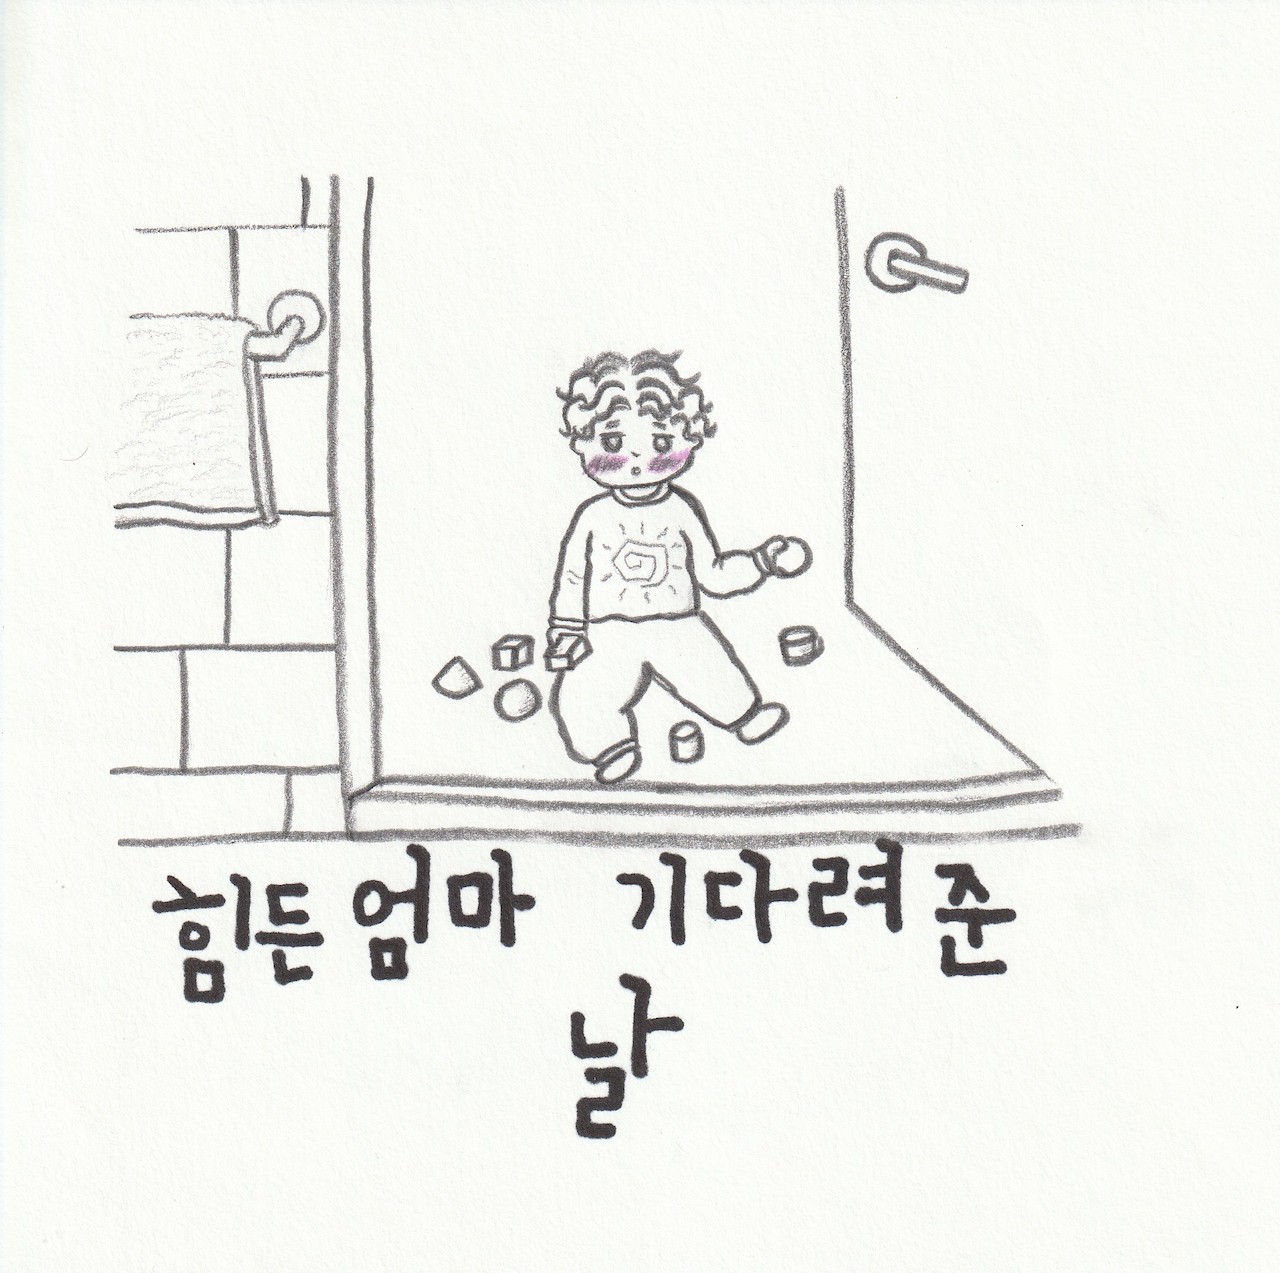 힘든 엄마 기다려 준
날